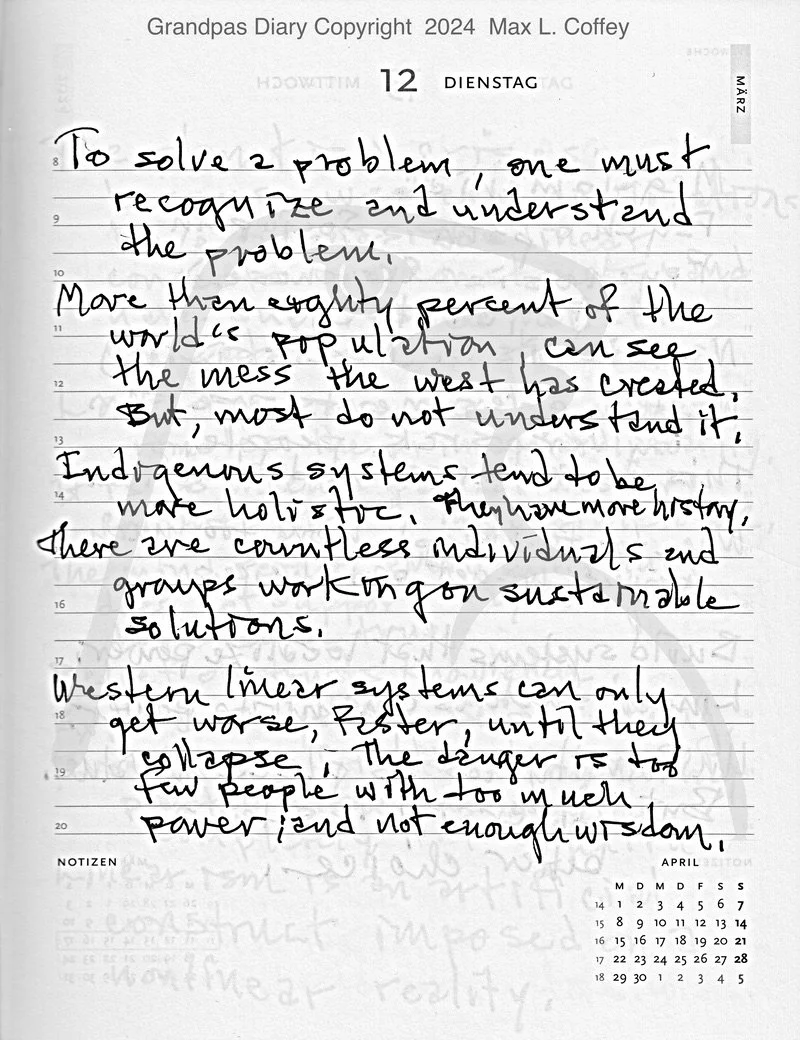 Grandpas Diary Copyright 2024 Max L. Coffey
12 DIENSTAG
MÄRZ
8 To solve a problem, one must
recognize and understand
9
the problem.
10
More than eighty percent of the
11
world's population, can see
the mess the west has created.
12
But, most do not understand it.
13
Indigenous systems tend to be
14
more holistic. They have more history,
there are countless individuals and
groups working on sustainable
16
solutions.
17
Western linear systems can only
18
get worse, Fester, until they
collapse; The danger is too
19
few people with too much
power; and not enough wisdom.
20
NOTIZEN
APRIL
M D M D F S S
14 1 2 3 4 5 6 7
15 8 9 10 11 12 13 14
16 15 16 17 18 19 20 21
17 22 23 24 25 26 27 28
18 29 30 1 2 3 4 5